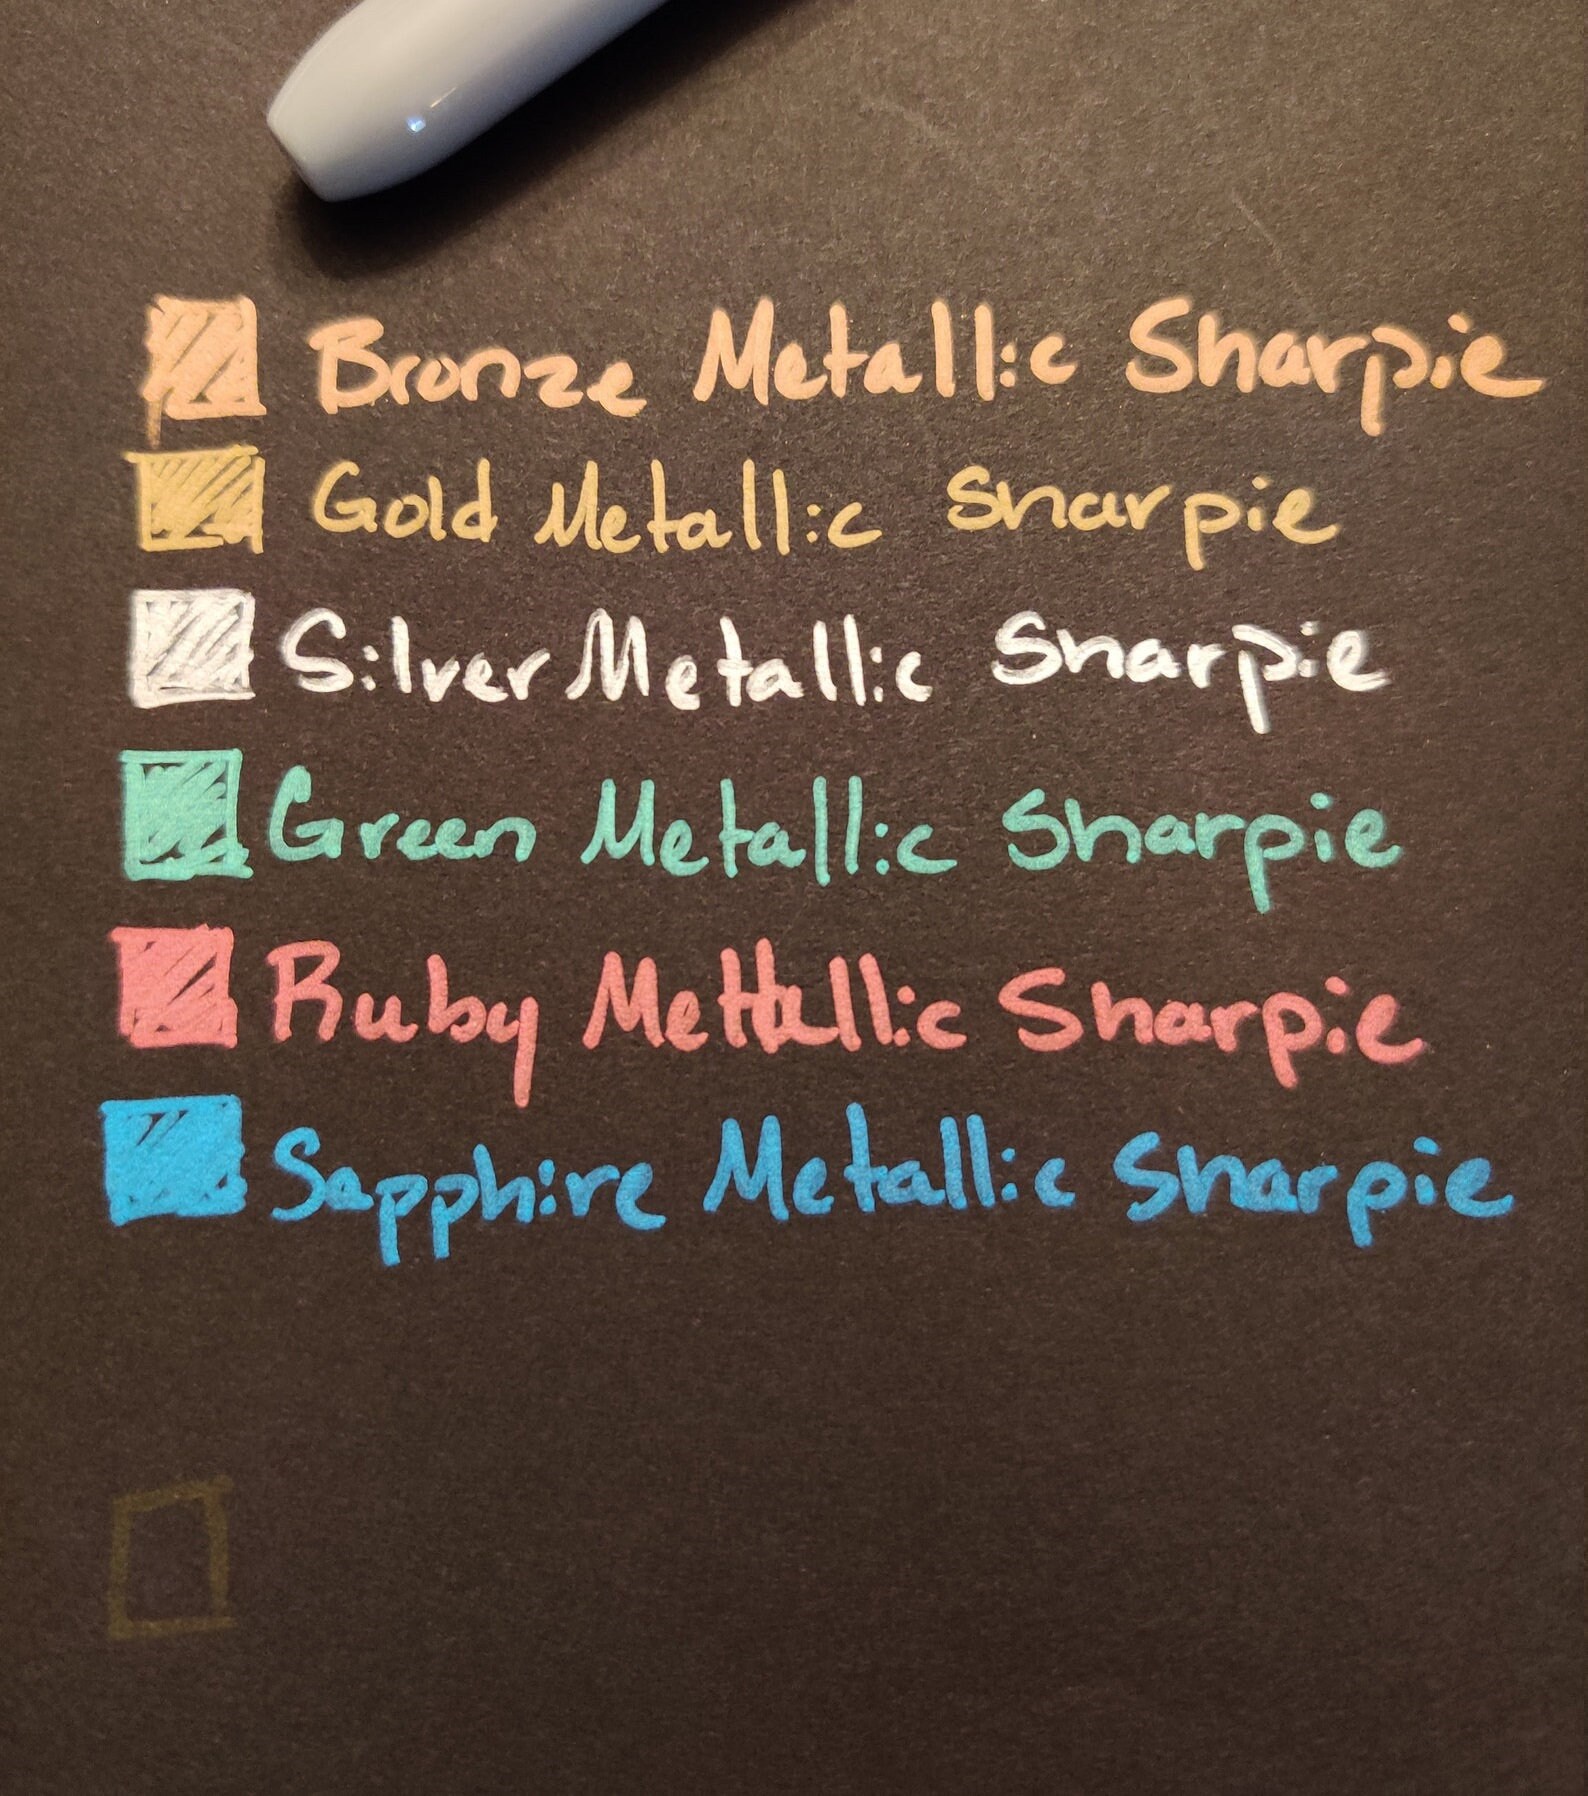 Bronze Metallic Sharpie
Gold Metallic Sharpie
Silver Metallic Sharpie
Green Metallic Sharpie
Ruby Metallic Sharpie
Sapphire Metallic Sharpie